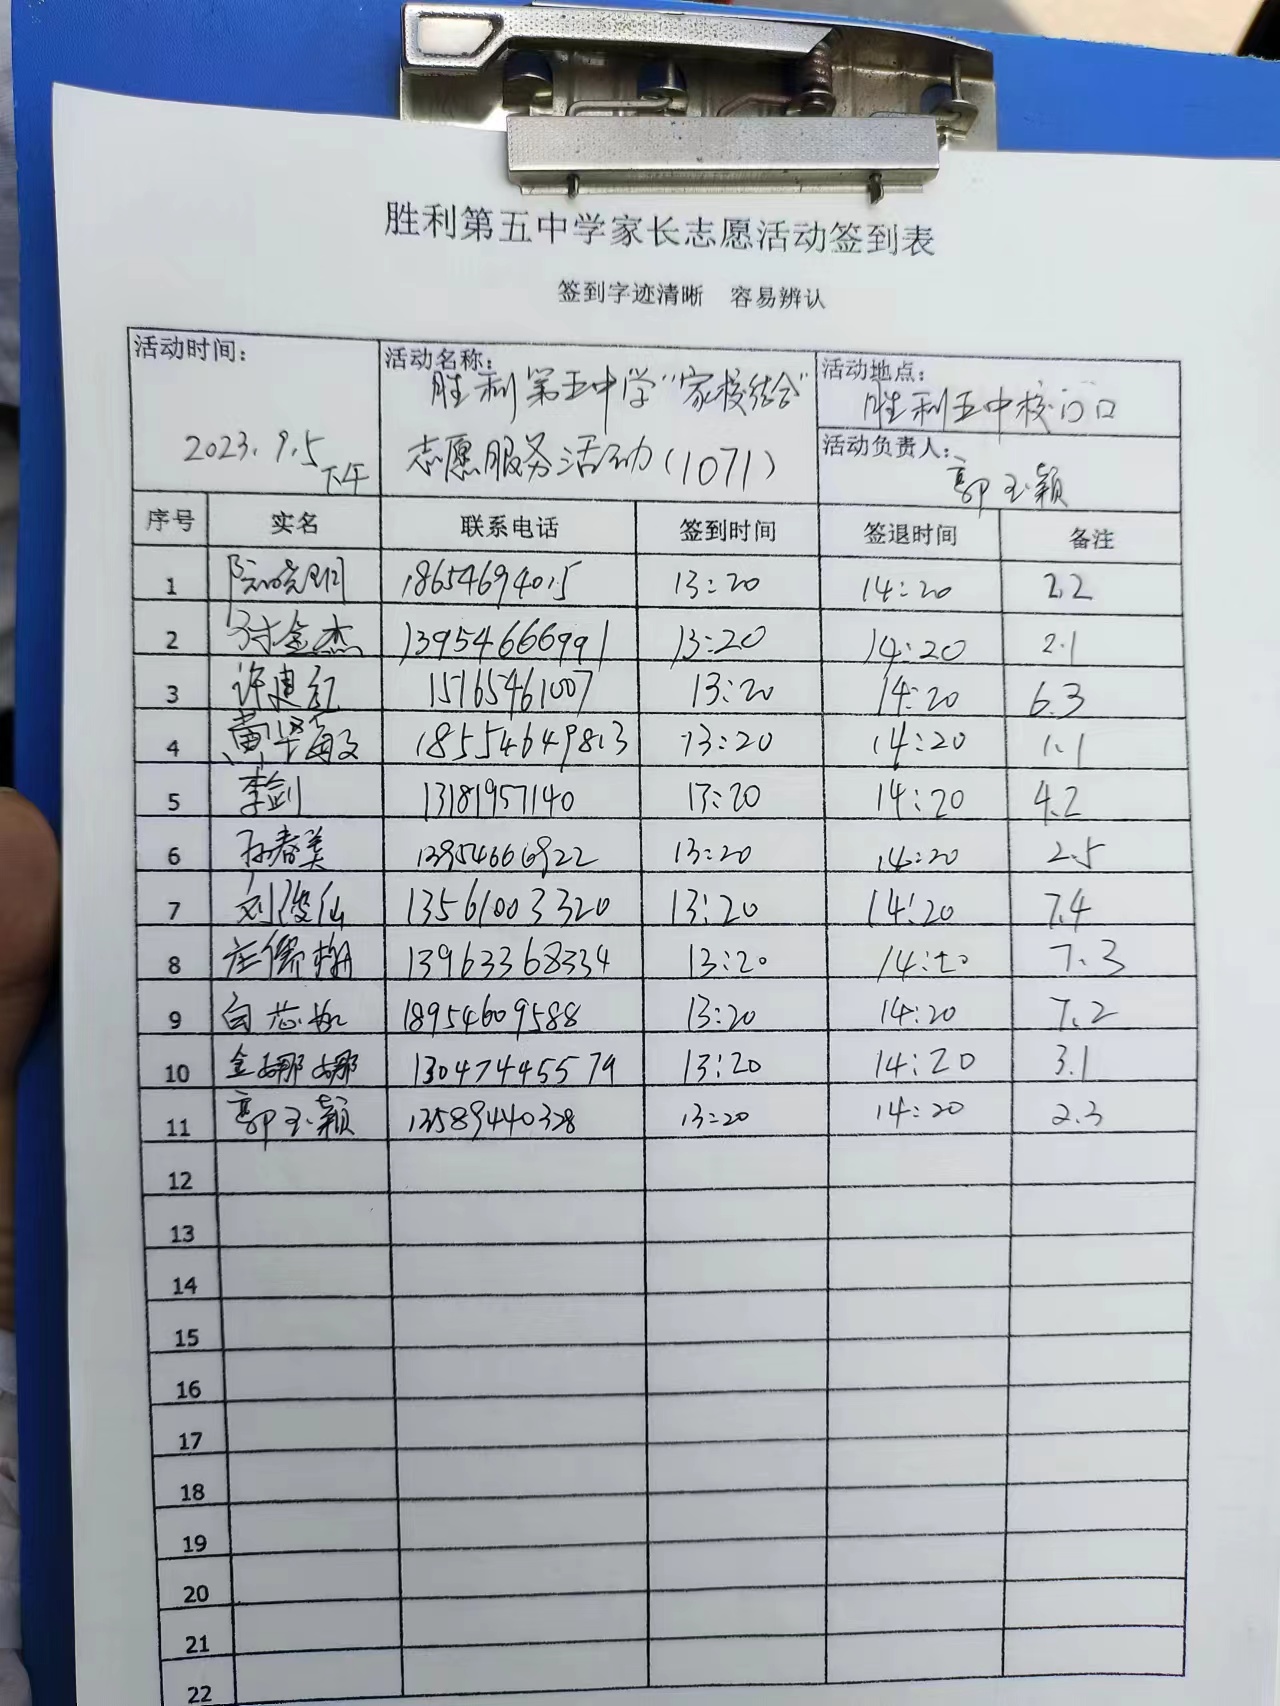 胜利第五中学家长志愿活动签到表
签到字迹清晰 容易辨认
活动时间: 2023.9.5 下午
活动名称: 胜利第五中学“家校结合”
志愿服务活动(1071)
活动地点: 胜利五中校门口
活动负责人: 郭玉颖
序号 实名 联系电话 签到时间 签退时间 备注
1 13:20 14:20 2.2
2 孙金杰 13954666991 13:20 14:20 2.1
3 许建红 15765461007 13:20 14:20 6.3
4 黄华敏 18554649813 13:20 14:20 1.1
5 李剑 13181957140 13:20 14:20 4.2
6 孙春美 13954666922 13:20 14:20 2.5
7 刘俊仙 13561003320 13:20 14:20 7.4
8 13963368334 13:20 14:20 7.3
9 18954609588 13:20 14:20 7.2
10 金娜娜 13047445579 13:20 14:20 3.1
11 郭玉颖 13589440328 13:20 14:20 2.3
12
13
14
15
16
17
18
19
20
21
22